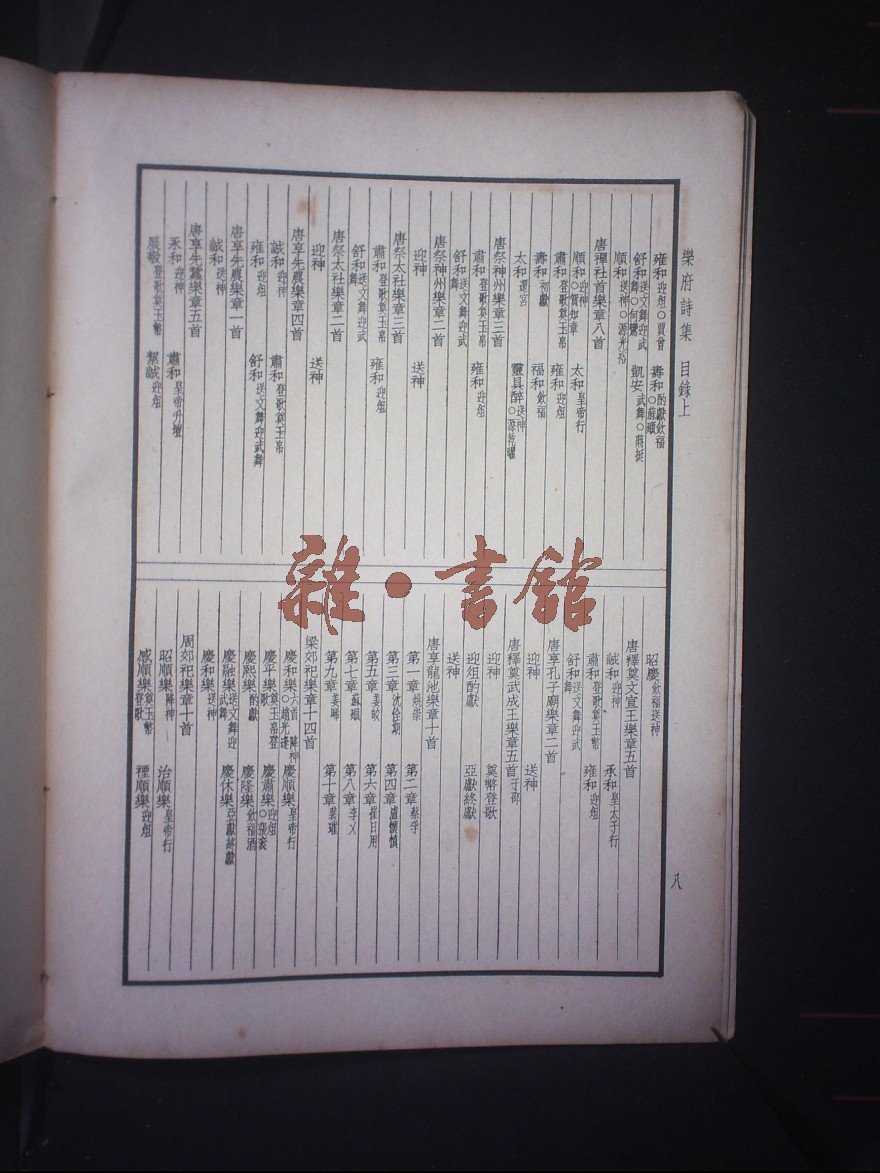 樂府詩集 目錄上
雍和迎俎○賈曾 壽和酌獻飲福○蘇頲
舒和送文舞迎武舞○何鸞 凱安武舞○蔣挺
順和送神○源光裕
唐禪社首樂章八首
順和迎神○賀知章 太和皇帝行
肅和登歌奠玉帛 雍和迎俎
壽和初獻 福和飲福
太和還宮 靈具醉送神○源乾曜
唐祭神州樂章三首
肅和登歌奠玉帛 雍和迎俎
舒和送文舞迎武舞
唐祭神州樂章二首
迎神 送神
唐祭太社樂章三首
肅和登歌奠玉帛 雍和迎俎
舒和送文舞迎武舞
唐祭太社樂章二首
迎神 送神
唐享先農樂章四首
諴和迎神 肅和登歌奠玉帛
雍和迎俎 舒和送文舞迎武舞
唐享先農樂章一首
諴和送神
唐享先蠶樂章五首
永和迎神 肅和皇帝升壇
展敬登歌奠玉幣 絜誠迎俎
昭慶飲福送神
唐釋奠文宣王樂章五首
諴和迎神 承和皇太子行
肅和登歌奠玉幣 雍和迎俎
舒和送文舞迎武舞
唐享孔子廟樂章二首
迎神 送神
唐釋奠武成王樂章五首于邵
迎神 奠幣登歌
迎俎酌獻 亞獻終獻
送神
唐享龍池樂章十首
第一章姚崇 第二章蔡孚
第三章沈佺期 第四章盧懷慎
第五章姜皎 第六章崔日用
第七章蘇頲 第八章李乂
第九章姜晞 第十章裴璀
梁郊祀樂章十四首
慶和樂六首降神○趙光逢 慶順樂皇帝行
慶平樂奠玉帛登歌 慶肅樂迎俎○張袞
慶熙樂酌獻 慶隆樂飲福酒
慶融樂送文舞迎武舞 慶休樂亞獻終獻
慶和樂送神
周郊祀樂章十首
昭順樂降神 治順樂皇帝行
感順樂奠玉幣登歌 禋順樂迎俎
八
雜·書館